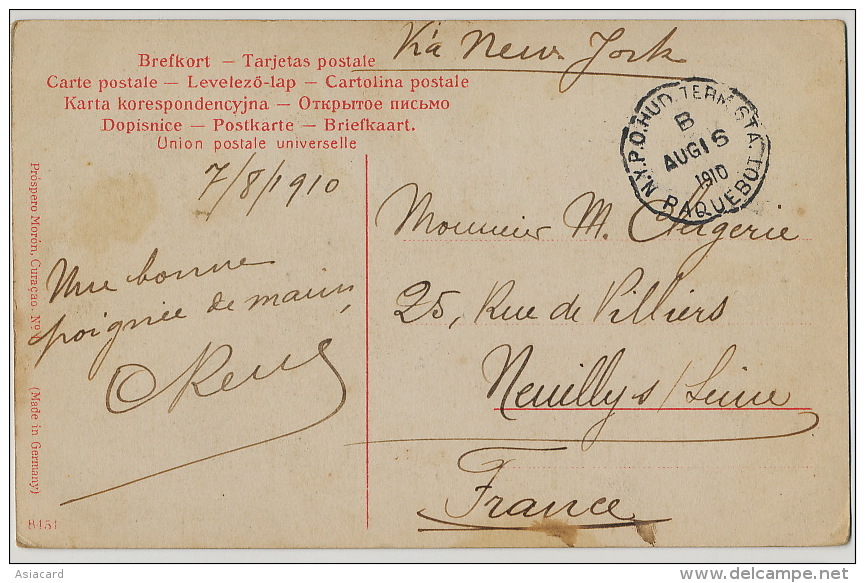 Via New York
Brefkort – Tarjetas postale
Carte postale – Levelező-lap – Cartolina postale
Karta korespondencyjna – Открытое письмо
Dopisnice – Postkarte – Briefkaart.
Union postale universelle
N.Y.P.O. HUD. TERM. STA.
B
AUG 16
1910
PAQUEBOT
7/8/1910
Une bonne
poignée de main,
Monsieur M.
25, Rue de Villiers
Neuilly s/Seine
France
Próspero Morón, Curaçao. No
(Made in Germany)
8151
Asiacard
delcampe.net